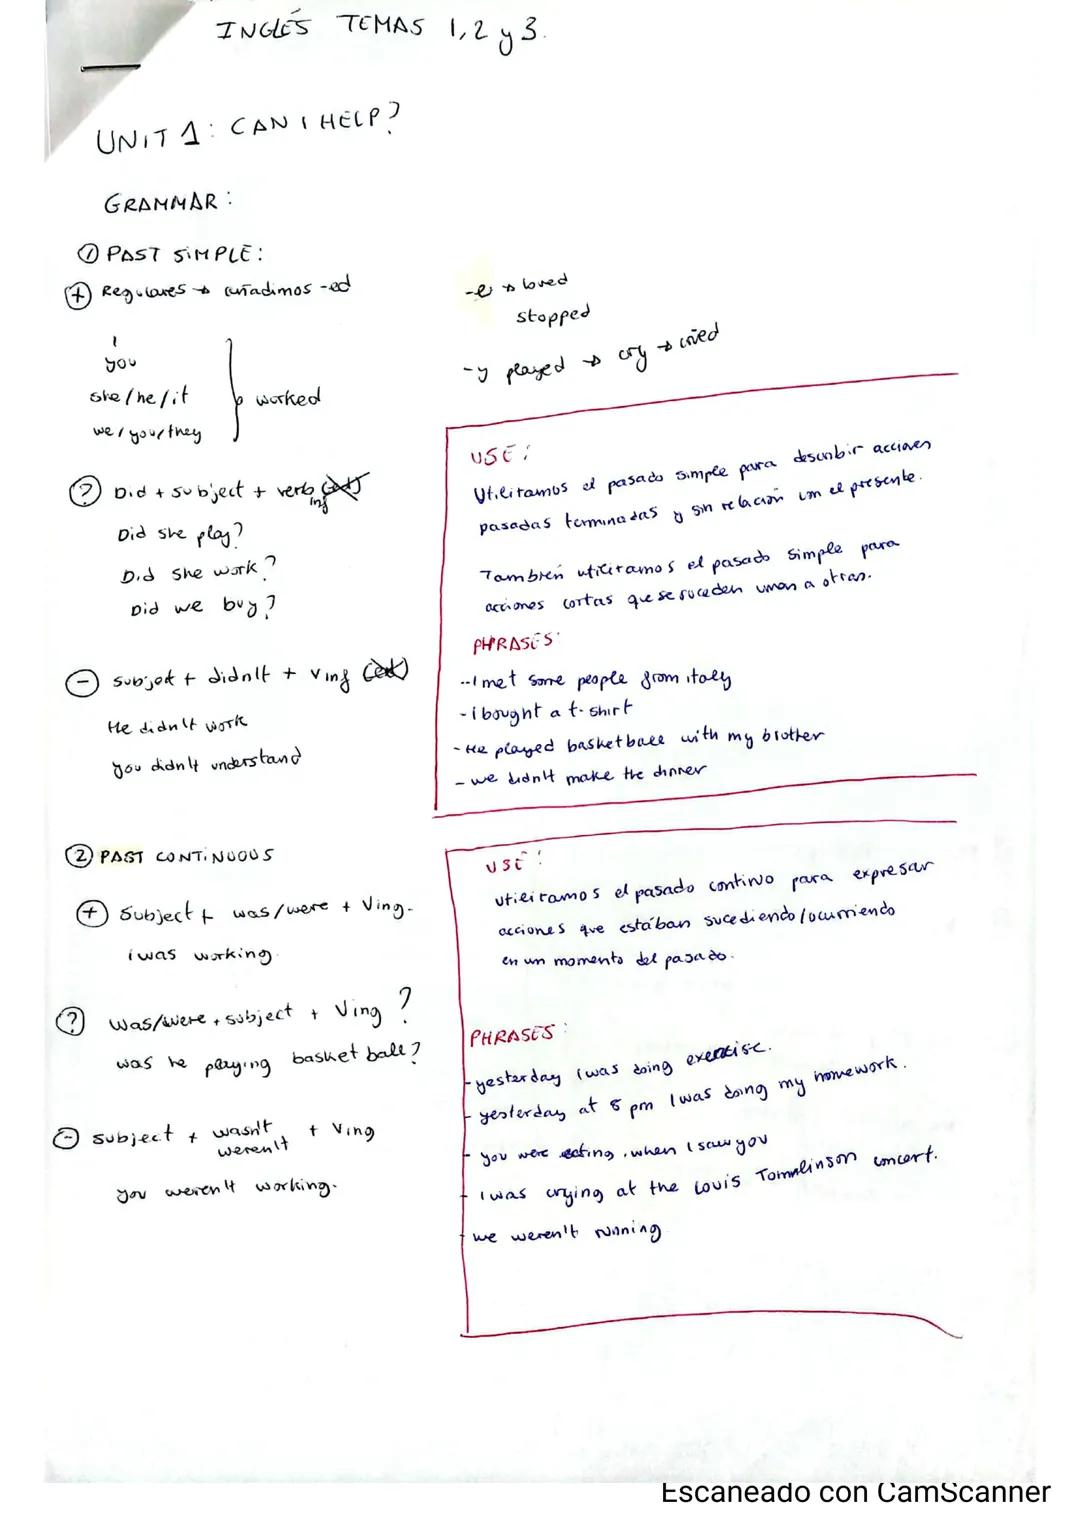 INGLÉS TEMAS 1, 2 y 3.
UNIT 1: CAN I HELP?
GRAMMAR:
① PAST SIMPLE:
(+) Regulares → añadimos -ed
I
you
she/he/it
we/you/they
worked
-e → loved
stopped
-y played → cry → cried
(?) Did + subject + verb
ing
Did she play?
Did she work?
Did we buy?
(-) subject + didn't + Ving
He didn't work
you didn't understand
USE:
Utilitamos el pasado simple para describir acciones
pasadas terminadas y sin relación con el presente.
También utilitamos el pasado simple para
acciones cortas que se suceden unas a otras.
PHRASES:
- I met some people from italy
- i bought a t-shirt
- He played basketball with my brother
- we didn't make the dinner
② PAST CONTINUOUS
(+) Subject + was/were + Ving.
i was working.
(?) Was/were + subject + Ving?
was he playing basket ball?
(-) subject + wasn't + Ving
weren't
you weren't working.
USE:
utilitamos el pasado continuo para expresar
acciones que estában sucediendo/ocurriendo
en un momento del pasado.
PHRASES:
- yesterday i was doing exercise.
- yesterday at 5 pm I was doing my homework.
- you were eating, when I saw you
- I was crying at the Louis Tomnlinson concert.
- we weren't running
Escaneado con CamScanner